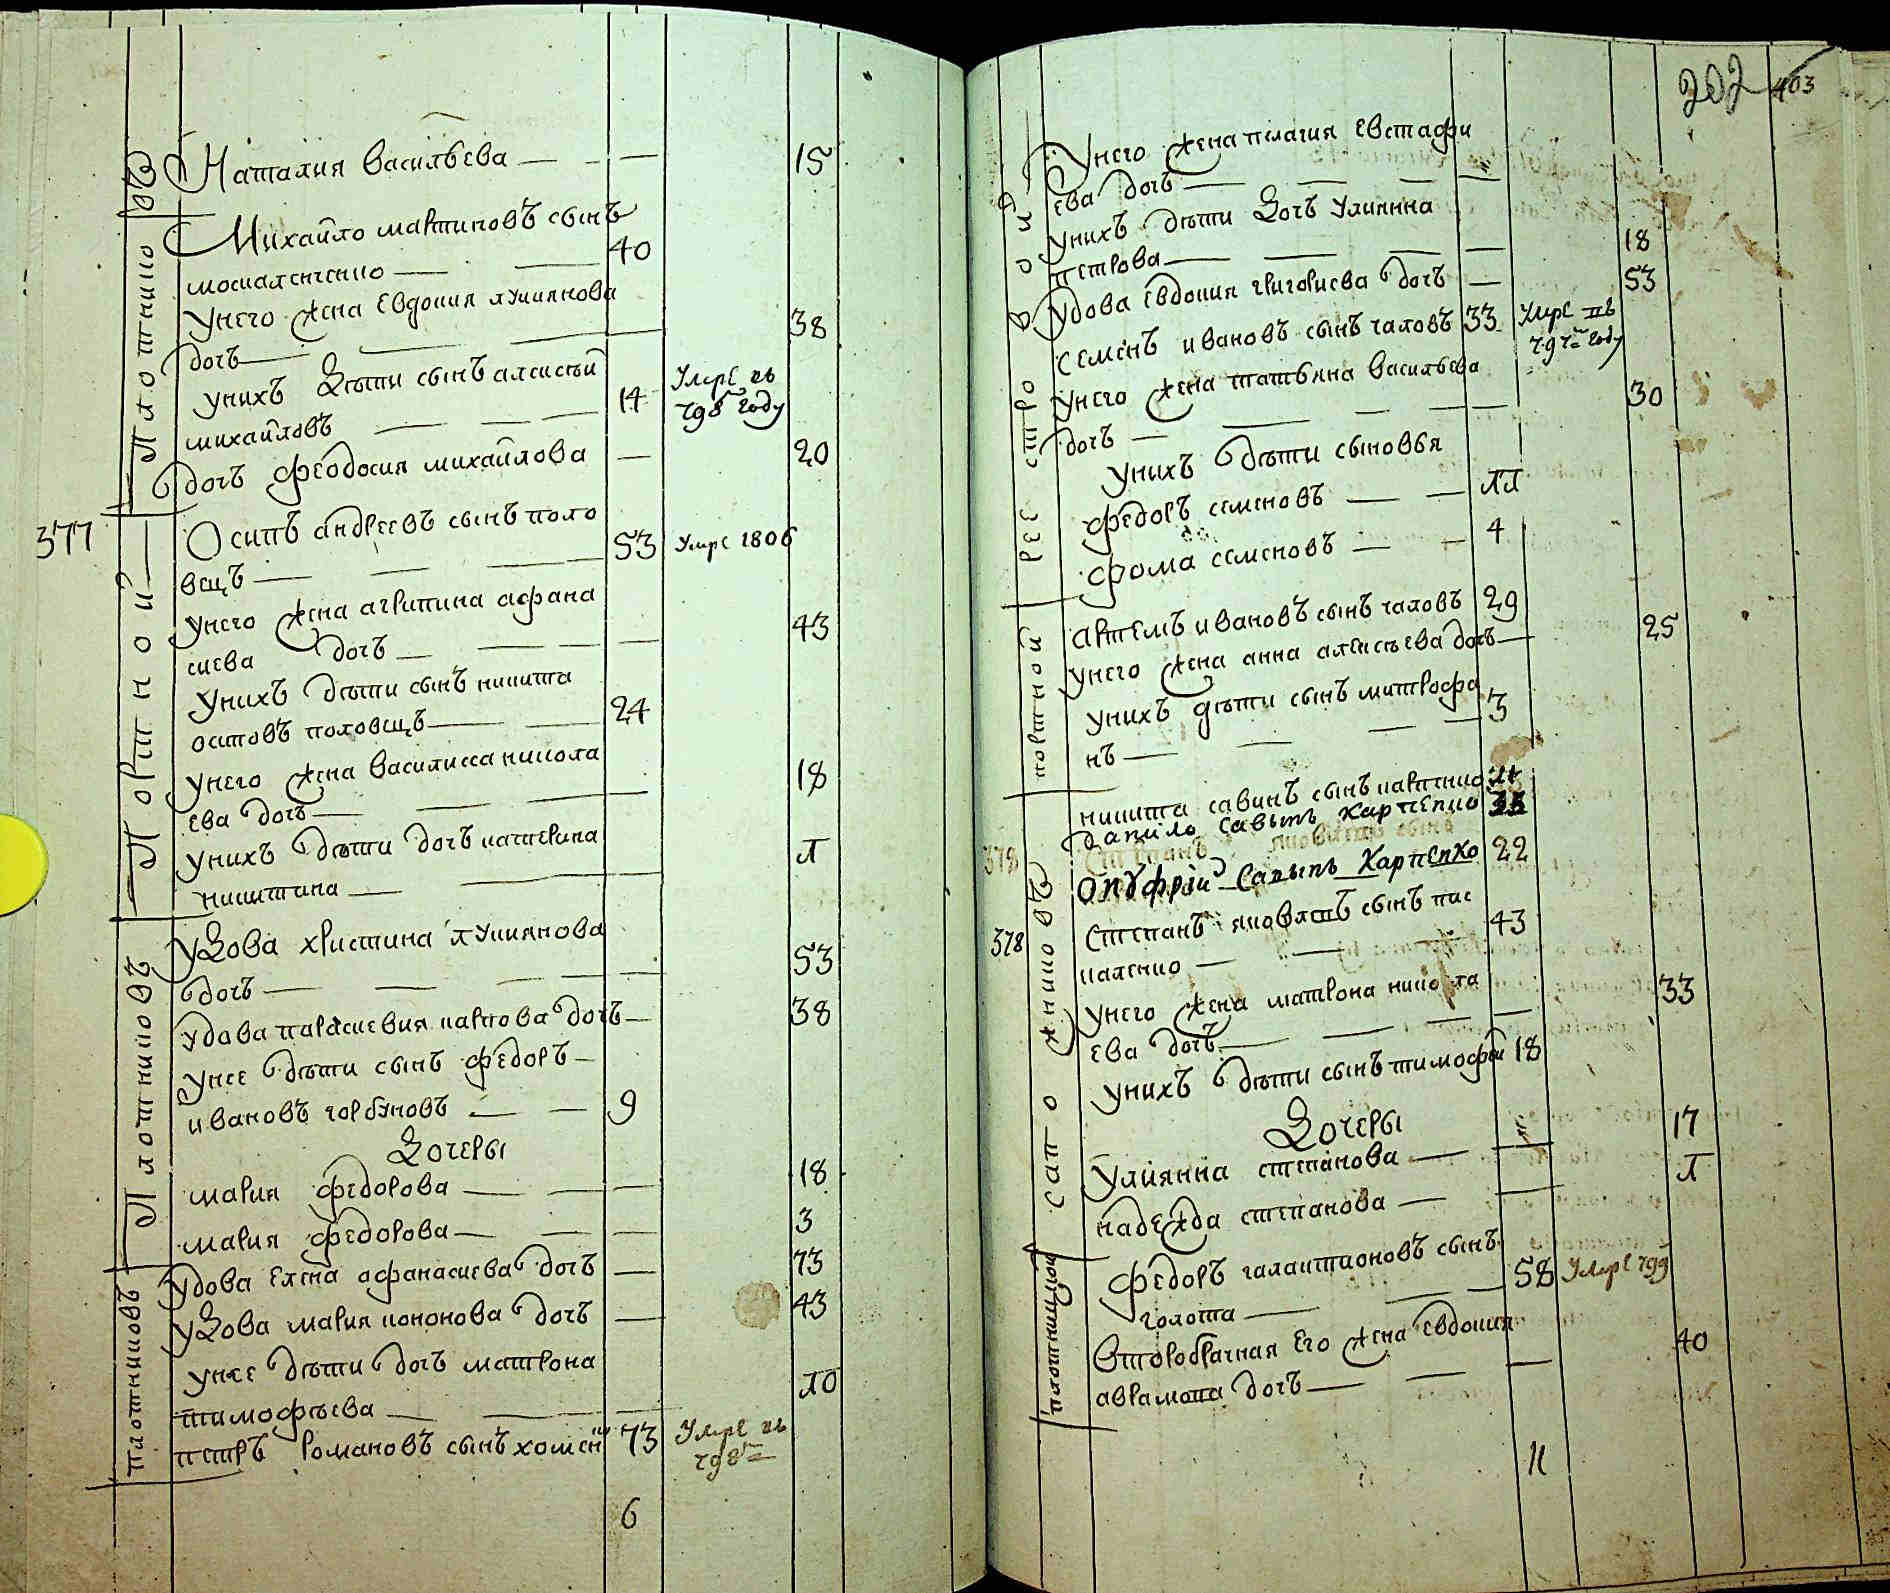 Наталия васильева — 15
Михайло мартиновъ сынъ
москаленченко — 40
Унего жена Евдокия лукиянова
дочь — 38
Унихъ дѣти сынъ алексѣй
михайловъ — 14 Умре въ 798 году
дочь феодосия михайлова — 20
377
Осипъ андреевъ сынъ поло
вщъ — 53 Умре 1806
Унего жена агрипина афана
сиева дочь — 43
Унихъ дѣти сынъ никита
осиповъ половщъ — 24
Унего жена василисса никола
ева дочь — 18
Унихъ дѣти дочь катерина
никитина — Л
Удова христина лукиянова
дочь — 53
Удова параскевия карпова дочь — 38
Унее дѣти сынъ федоръ —
ивановъ горбуновъ — 9
Дочеры
мария федорова — 18
мария федорова — 3
Удова Елена афанасиева дочь — 73
Удова мария кононова дочь — 43
Унее дѣти дочь матрона
тимофѣева — ЛО
петръ романовъ сынъ хомен 73 Умре въ 798
6
Плотнико
въ
Портной
Плотниковъ
плотниковъ
202 403
Унего жена пелагия Евстафи
ева дочь —
Унихъ дѣти Дочь Улиянна
петрова — 18
Удова Евдокия григориева дочь — 53
семенъ ивановъ сынъ чаловъ 33 Умре въ 797 году
Унего жена татьяна васильева
дочь — 30
Унихъ дѣти сыновья
федоръ семеновъ — ЛЛ
фома семеновъ — 4
артемъ ивановъ сынъ чаловъ 29
Унего жена анна алексѣева дочь — 25
Унихъ дѣти сынъ митрофа
нъ — 3
никита савинъ сынъ карпенко
данило савынъ карпенко
Онуфрій Савынъ Карпенко 22
378
Степанъ яковлевъ сынъ пис
каленко — 43
Унего жена матрона никола
ева дочь — 33
Унихъ дѣти сынъ тимофей 18
Дочеры
Улиянна степанова — 17
надежда степанова — Л
федоръ галактионовъ сынъ
голота — 58 Умре 799
Второбрачная Его жена Евдокия
аврамова дочь — 40
11
рее стро вой
портной
сапожниковъ
плотницкой